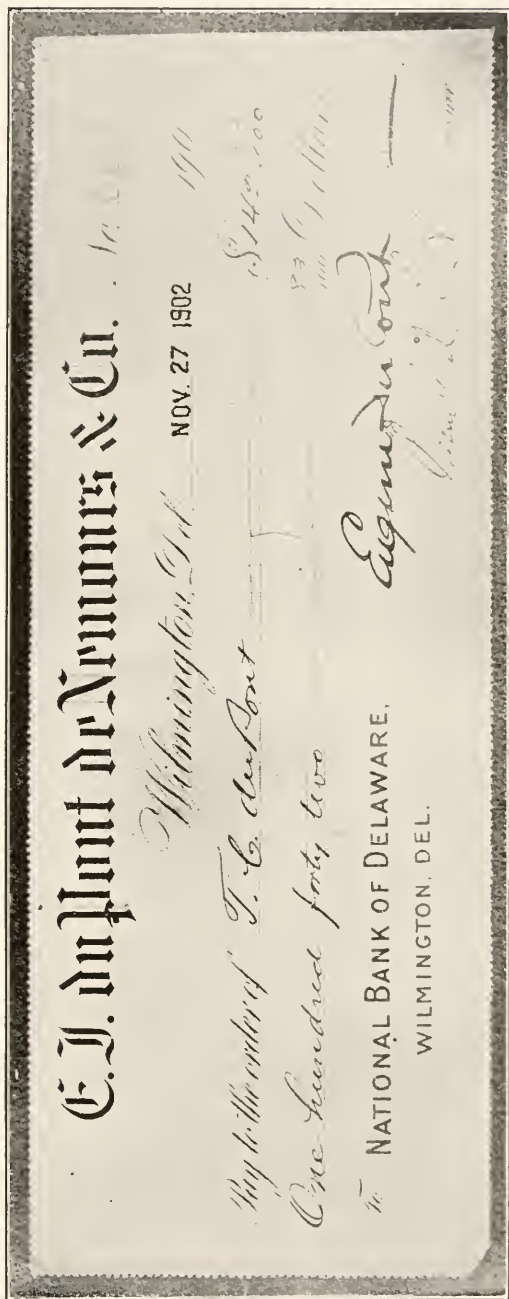 E. I. du Pont de Nemours & Co.
Wilmington, Del. NOV. 27 1902 190
Pay to the order of T. C. duPont
One hundred forty two 83/100 Dollars
To NATIONAL BANK OF DELAWARE,
WILMINGTON, DEL.
Eugene du Pont